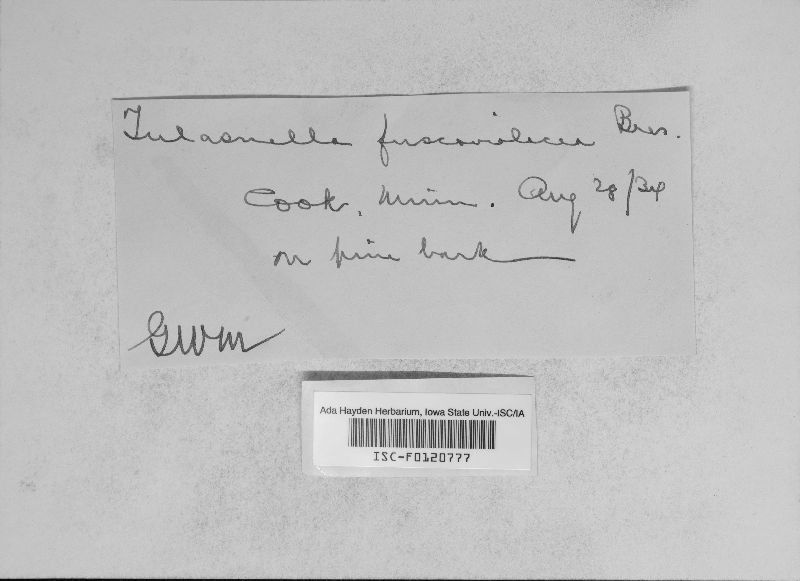 Tulasnella fuscoviolacea Bres.
Cook, Minn. Aug 28/34
on pine bark
GWM
Ada Hayden Herbarium, Iowa State Univ.-ISC/IA
ISC-F0120777